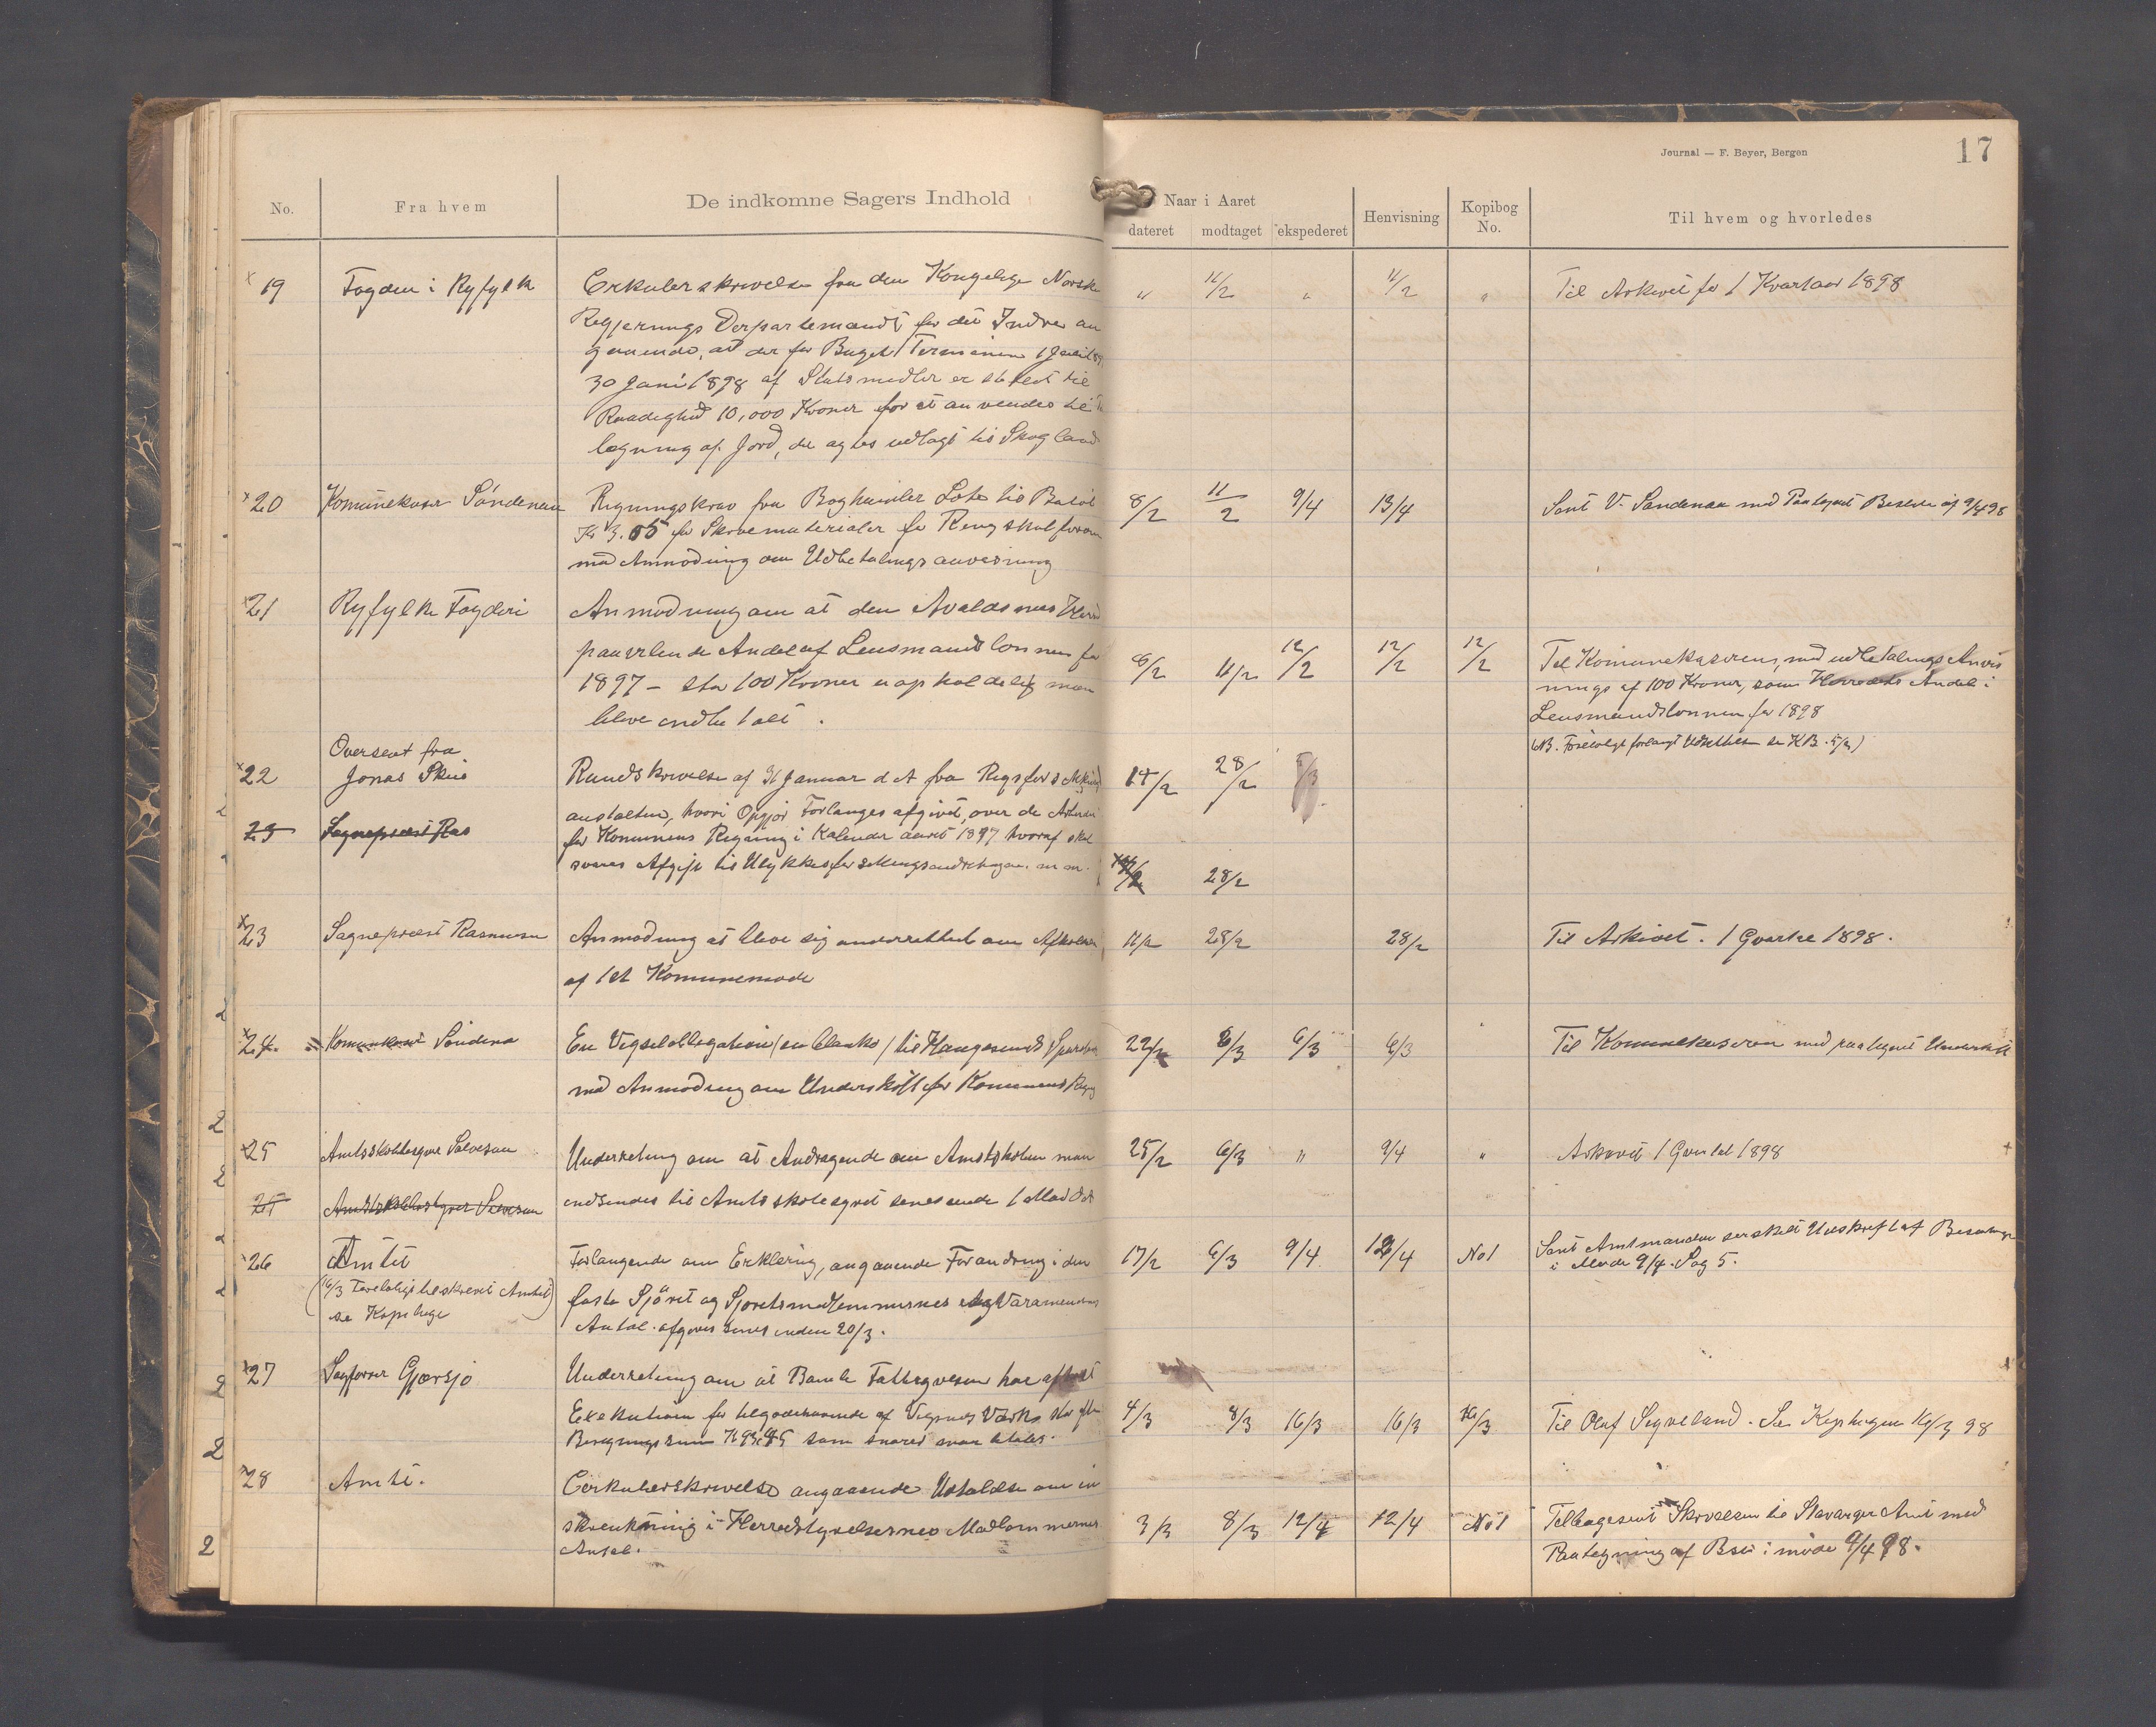 Journal — F. Beyer, Bergen
17
No.
Fra hvem
De indkomne Sagers Indhold
Naar i Aaret
dateret
modtaget
ekspederet
Henvisning
Kopibog No.
Til hvem og hvorledes
19 Fogden i Ryfylke
Cirkulerskrivelse fra den Kongelige Norske
Regjerings Departemandt for det Indre an
gaaende, at der for Buget Terminen 1 Juli
30 Juni 1898 af Statsmedler er stelet til
Raadighed 10,000 Kroner for at anvendes til
lægning af Jord, der agtes udlagt til Skogland
" 11/2 " 11/2 " Til Arkivet for 1 Kvartaar 1898
20 Komunekaser Søndenaa
Regningskrav fra Boghandler Lote til Beløb
Kr 3.65 for Skrivematerialer for Rengskabsføreren
med Anmodning om Udbetalingsanvisning
8/2 11/2 9/4 13/4 Sent V. Søndenaa med Paategnet Beslutn af 9/4 98
21 Ryfylke Fogderi
Anmodning om at den Avaldsnes Herred
paavilende Andel af Lensmandslønnen for
1897 - stor 100 Kroner uopholdelig maa
blive indbetalt.
8/2 11/2 12/2 12/2 12/2 Til Komunekaseren med udbetalings Anvis
nings af 100 Kroner, som Herredets Andel i
Lensmandslønnen for 1898
22 Oversent fra
Jonas Skeie
Rundskrivelse af 31 Januar d A fra Rigsforsikrings
anstalten, hvori Opgjør Forlanges afgivet, over de Arbeider
for Komunens Regning i Kalender aaret 1897 hvoraf skal
svares Afgift til Ulykkesforsikringsindretningen. m m.
14/2 28/2
23 Sognepræst Ras
28/2
23 Sognepræst Rasmusen
Anmodning at blive sig underrettet om Afholdelse
af 1et Komunemøde
11/2 28/2 28/2 Til Arkivet. 1 Qvartal 1898.
24 Komunekaser Søndena
En Vigselobligation (in blanko) til Haugesunds Spareban
med Anmodning om Underskrift for Komunens Regng
22/2 6/3 6/3 6/3 Til Komunekaseren med paategnet Underskrift
25 Amtsskolebestyrer Salvesen
Underretning om at Andragende om Amtsskolen maa
indsendes til Amtsskolestyret senest inde 1 Mai d A
25/2 6/3 " 9/4 " Arkivet 1 Qvartal 1898
25 Amtsskolebestyrer Salvesen
26 Amtet
(16/3 Foreløbigt tilskrevet Amtet
se Kopiboge)
Forlangende om Erklering, angaaende Forandring i den
faste Sjøret og Sjøretsmedlemmernes og Varamendenes
Antal. afgives senest inden 20/3.
17/2 6/3 9/4 12/4 No 1 Sent Amtmanden særskilt Udskrift af Beslutninge
i Møde 9/4. Sag 5.
27 Sagfører Gjærsjø
Underretning om at Bamle Fattigvesen har afholdt
Exekution for tilgodehavende af Vigsnes Værk, stor efter
Beregning som snarest maa betales.
4/3 8/3 16/3 16/3 16/3 Til Olaf Sigveland. Se Kopibogen 16/3 98
28 Amtet.
Cirkulerskrivelse angaaende Udtalelse om in
skrenkning i Herredstyrelsernes Medlemmernes
Antal.
3/3 8/3 12/4 12/4 No 1 Tilbagesent Skrivelsen til Stavanger Amt med
Paategning af Besl i møde 9/4 98.